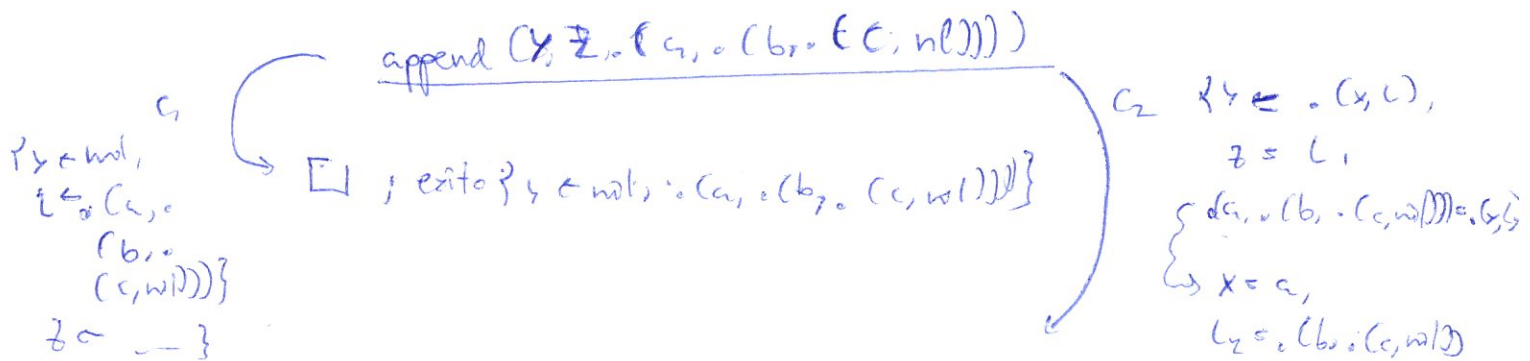 append (y, z, .(a, .(b, .(c, nil))))
C1
{y ← nil,
L ← .(a, .
(b, .
(c, nil)))}
z ← __ }
[], exito {y ← nil, .(a, .(b, .(c, nil)))}
C2 {y ← .(x, L),
z = L,
.(a, .(b, .(c, nil))) = .(x, L)
↳ x = a,
L2 = .(b, .(c, nil))